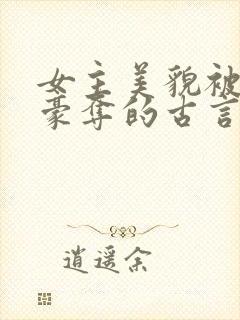 女主美貌被
豪夺的古言
逍遥余